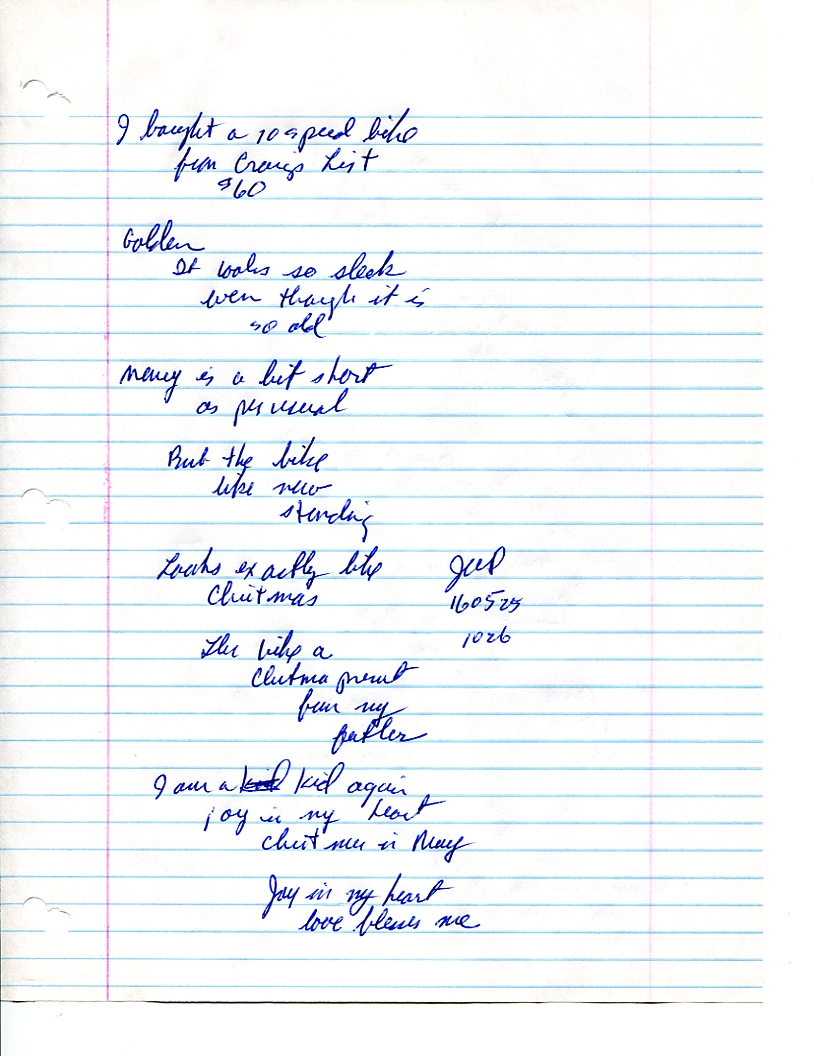 I bought a 10 speed bike
from Craigs List
$60
Golden
It looks so sleek
even though it is
so old
Money is a bit short
as per usual
But the bike
like new
standing
Looks exactly like
Christmas
Like a
Christmas present
from my
father
I am a kid kid again
joy in my heart
Christmas in May
Joy in my heart
love blesses me
160525
1026